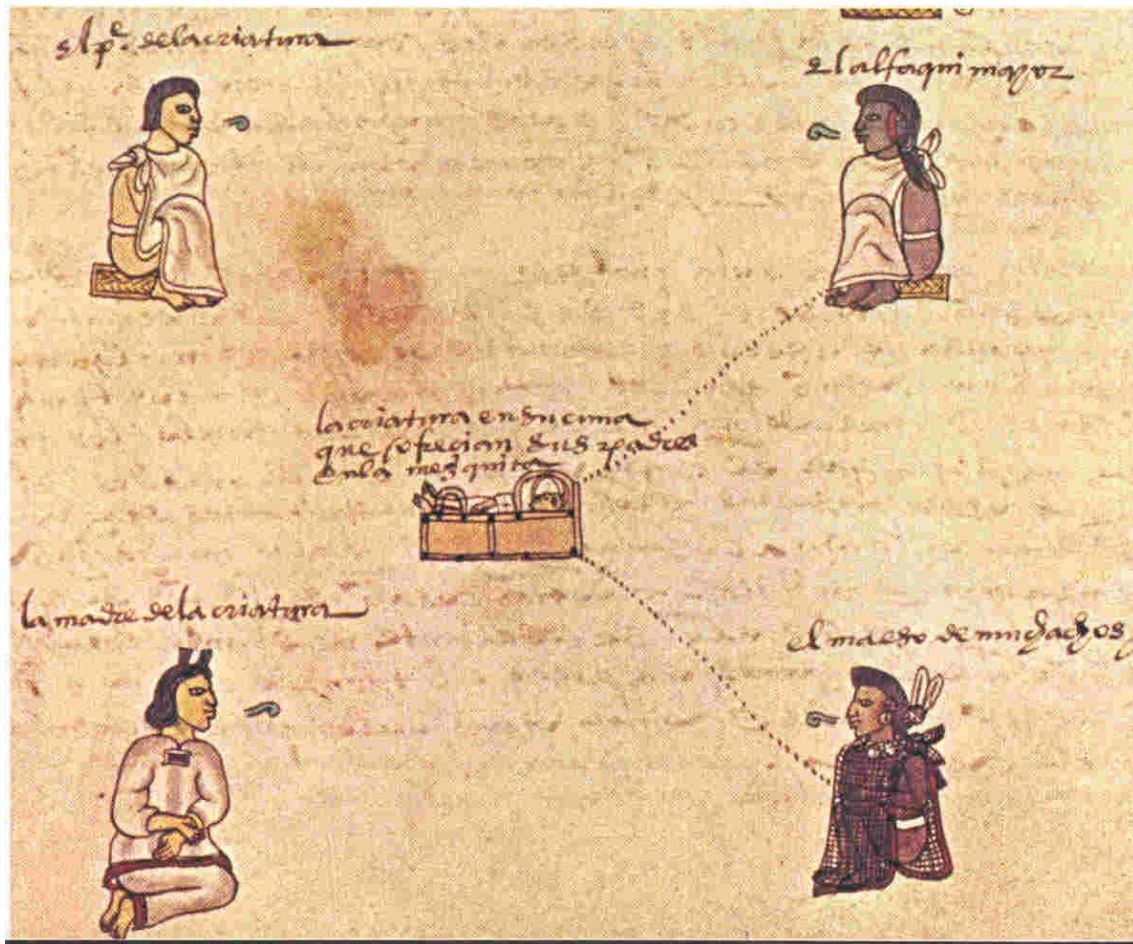 el pe. de la criatura
el alfaqui mayor
la criatura en su cuna
que ofreçian sus padres
en la mezquita
la madre de la criatura
el maeso de muchachos